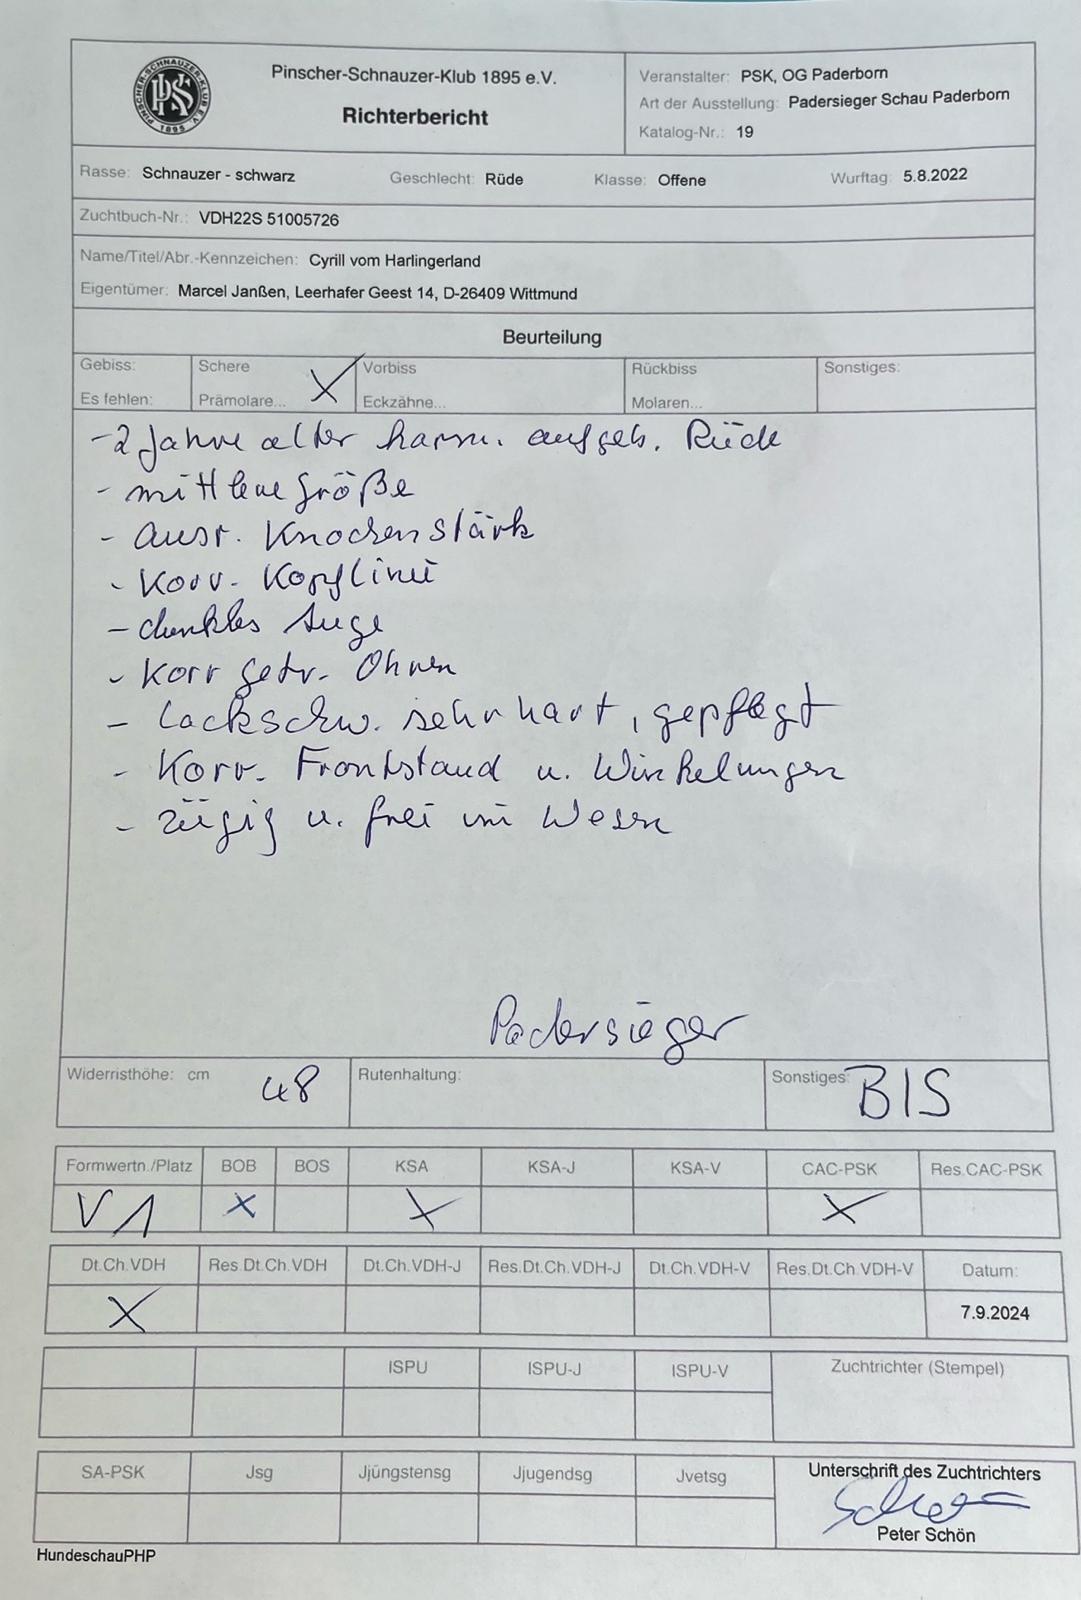 PINSCHER-SCHNAUZER-KLUB E.V.
PSK
1895
Pinscher-Schnauzer-Klub 1895 e.V.
Richterbericht
Veranstalter: PSK, OG Paderborn
Art der Ausstellung: Padersieger Schau Paderborn
Katalog-Nr.: 19
Rasse: Schnauzer - schwarz Geschlecht: Rüde Klasse: Offene Wurftag: 5.8.2022
Zuchtbuch-Nr.: VDH22S 51005726
Name/Titel/Abr.-Kennzeichen: Cyrill vom Harlingerland
Eigentümer: Marcel Janßen, Leerhafer Geest 14, D-26409 Wittmund
Beurteilung
Gebiss: Schere X Vorbiss Rückbiss Sonstiges:
Es fehlen: Prämolare... Eckzähne... Molaren...
- 2 Jahre alter harm. aufgeb. Rüde
- mittlere Größe
- ausr. Knochenstärke
- Korr. Kopflinie
- dunkles Auge
- Korr getr. Ohren
- Lackschw. sehr hart, gepflegt
- Korr. Frontstand u. Winkelungen
- zügig u. frei im Wesen
Padersieger
Widerristhöhe: cm 48 Rutenhaltung: Sonstiges: BIS
Formwertn./Platz BOB BOS KSA KSA-J KSA-V CAC-PSK Res.CAC-PSK
V1 X X X
Dt.Ch.VDH Res.Dt.Ch.VDH Dt.Ch.VDH-J Res.Dt.Ch.VDH-J Dt.Ch.VDH-V Res.Dt.Ch.VDH-V Datum:
X 7.9.2024
ISPU ISPU-J ISPU-V Zuchtrichter (Stempel)
SA-PSK Jsg Jjüngstensg Jjugendsg Jvetsg Unterschrift des Zuchtrichters
Peter Schön
HundeschauPHP